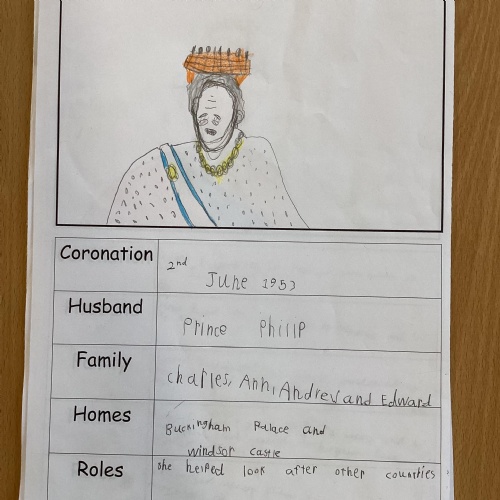 Coronation
2nd
June 1953
Husband
Prince Philip
Family
charles, Ann, Andrev and Edward
Homes
Buckingham Palace and
windsor castle
Roles
she helped look after other countries